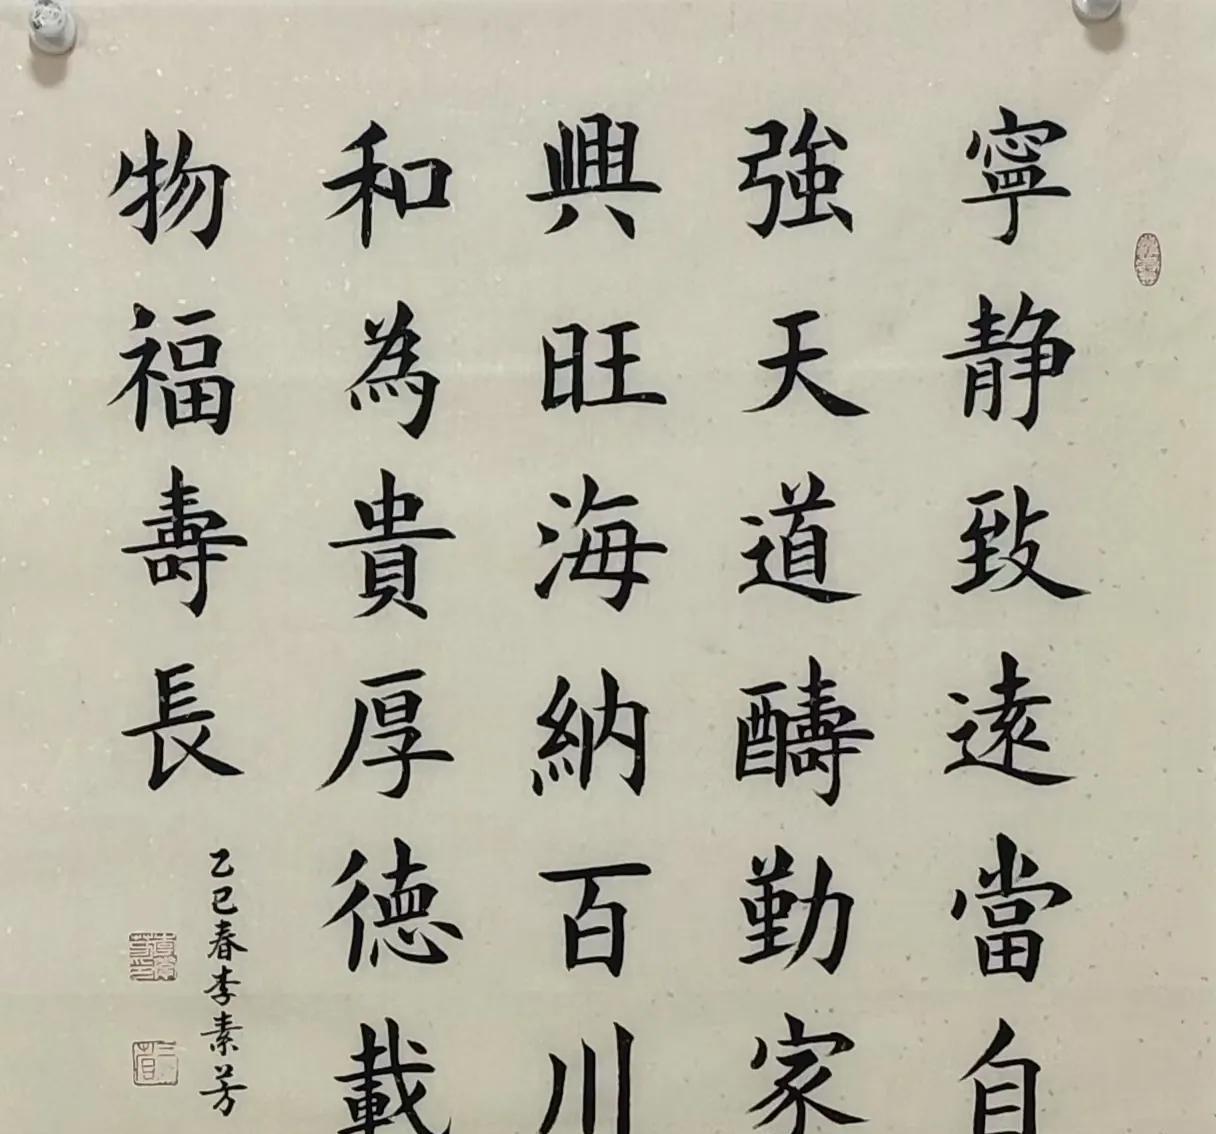 寧静致遠當自
強天道酬勤家
興旺海納百川
和為貴厚德載
物福壽長
乙巳春李素芳